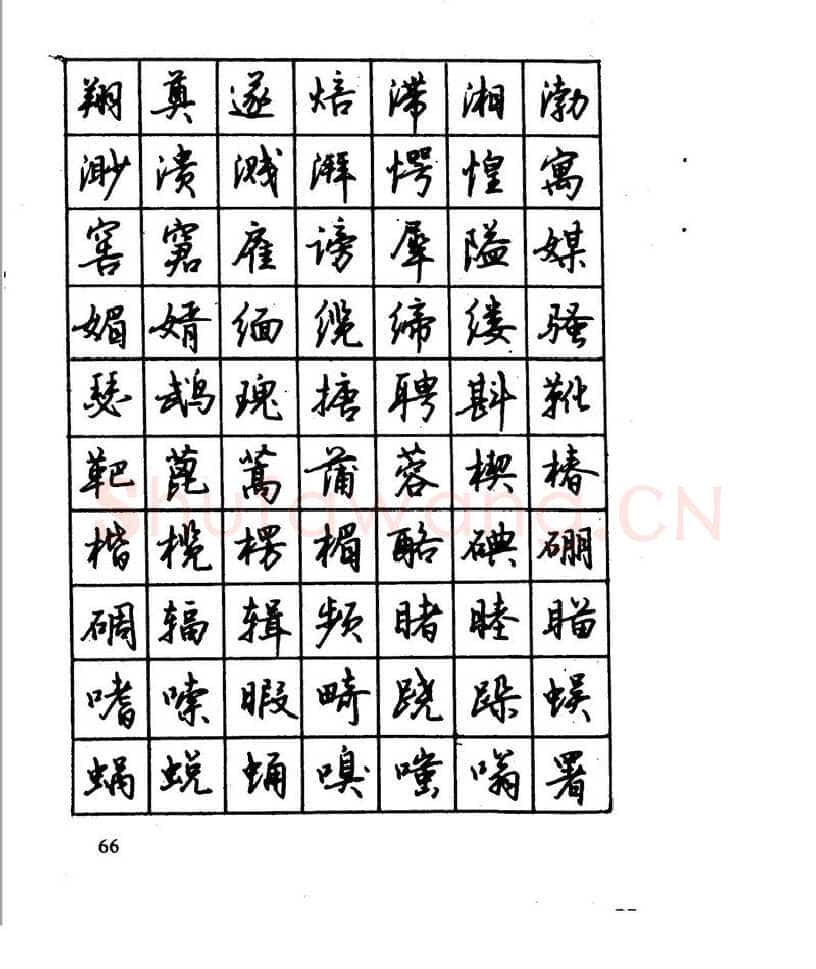 翔 奠 遂 焙 滞 湘 渤
渺 溃 溅 湃 愕 惶 寓
窖 窘 雇 谤 犀 隘 媒
媚 婿 缅 缆 缔 缕 骚
瑟 鹉 瑰 搪 聘 斟 靴
靶 蓖 蒿 蒲 蓉 楔 椿
楷 榄 楞 楣 酪 碘 硼
碉 辐 辑 频 睹 睦 瞄
嗜 嗦 暇 畸 跷 跺 蜈
蜗 蜕 蛹 嗅 嗤 嗡 署
66
Shufawang.CN